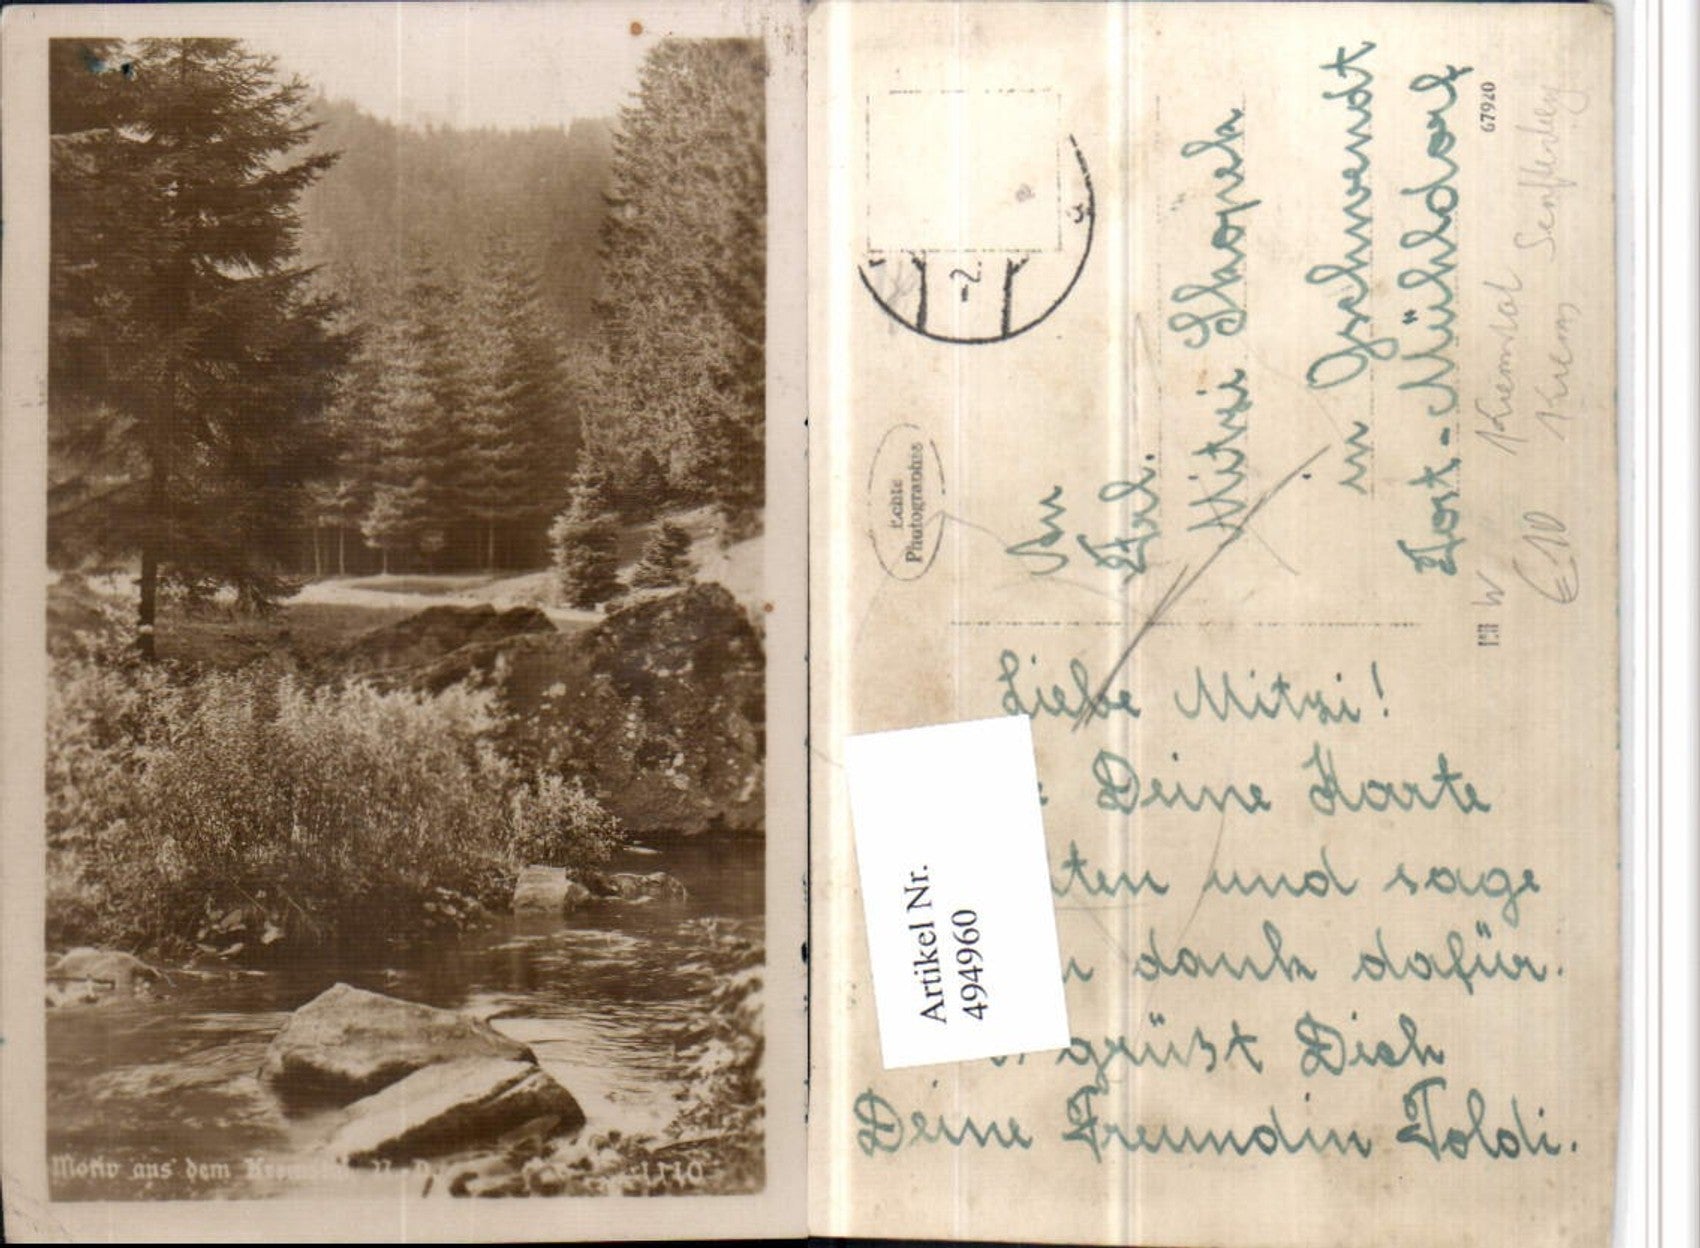 Motiv aus dem Kremstal N.D.
1110
Echte
Photographie
-2.
An
Frl.
Mitzi Skopek
in Gschwendt
Post-Mühldorf
67920
W Kremstal Senftenberg
Krems
Liebe Mitzi!
Deine Karte
ten und sage
dank dafür.
grüßt Dich
Deine Freundin Poldi.
Artikel Nr.
494960